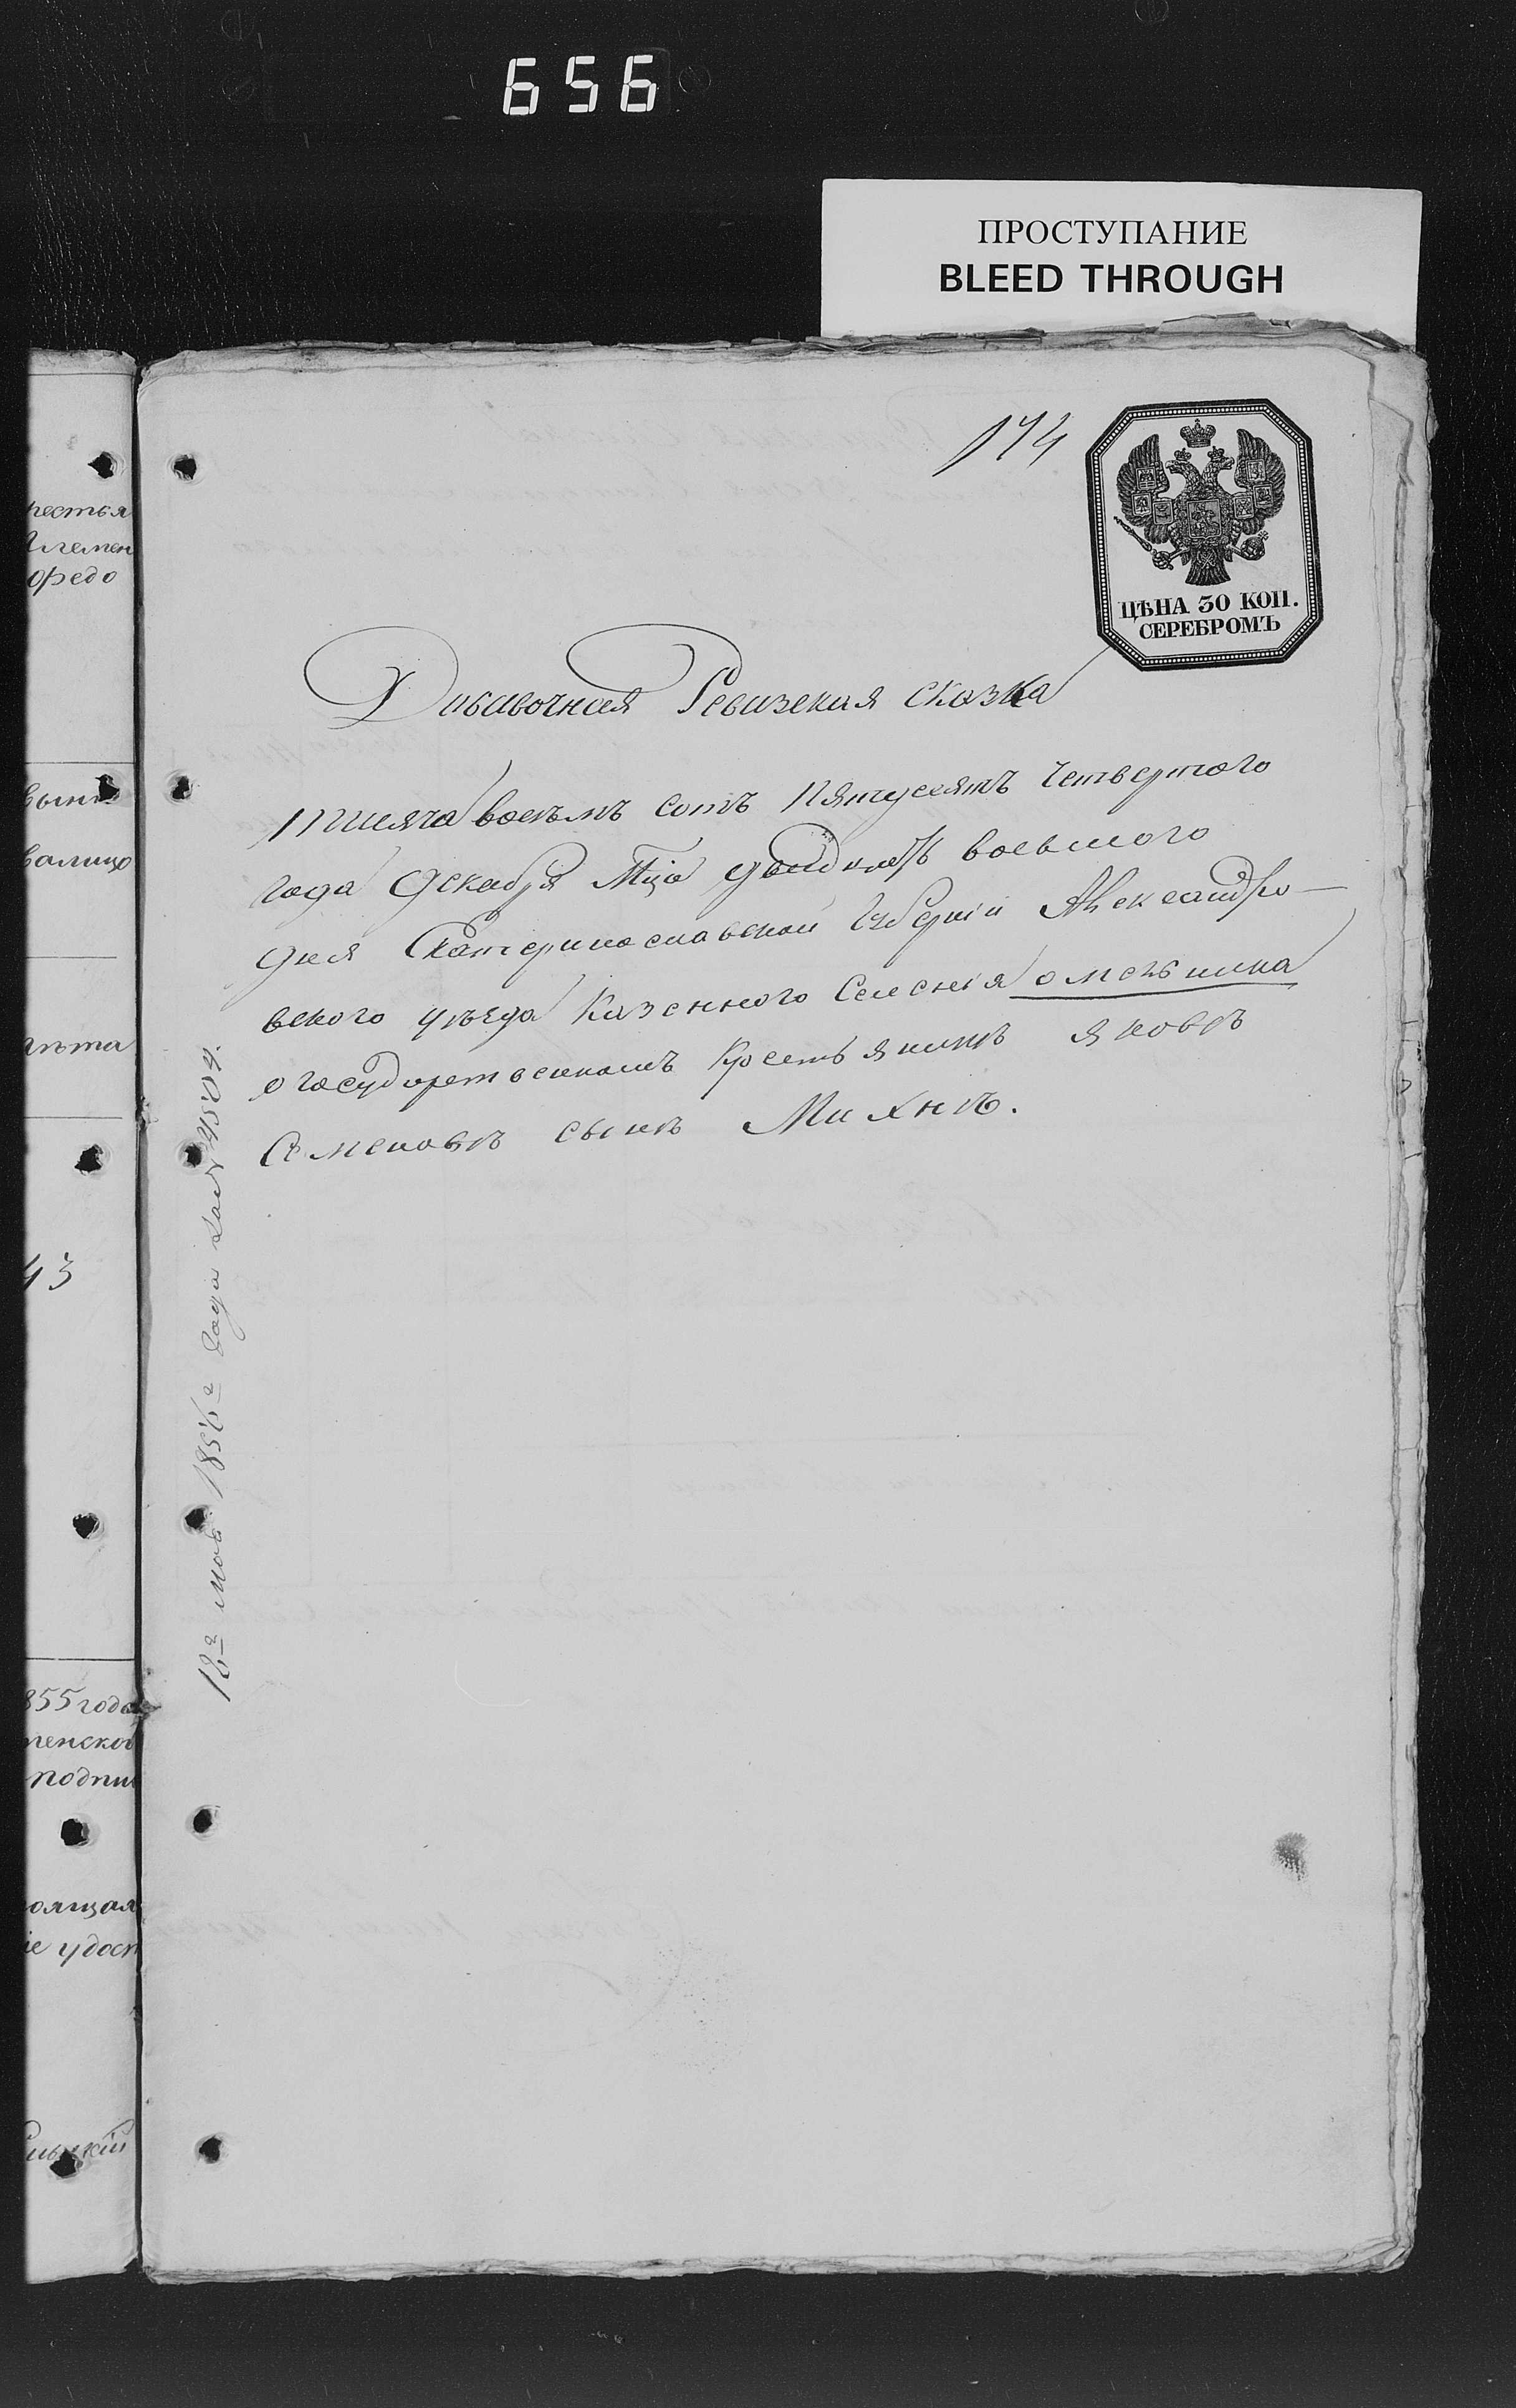 656
ПРОСТУПАНИЕ
BLEED THROUGH
174
ЦѢНА 30 КОП.
СЕРЕБРОМЪ
Добавочная Ревизская сказка
тисяча восѣмъ сотъ Пятдесятъ Четвертого
года Декабря Мца двадцать восьмого
дня Екатеринославской Губерніи Александро-
вского уѣзда Казенного Селенія Омельника
о государственномъ Крестьянинѣ Яковѣ
Семеновѣ сынѣ Михнѣ.
18го мая 1856го года 4504.
рестья
племен
оредо
вынъ
валицо
лѣта
43
855 года
ленской
подпи
оящая
іе удост